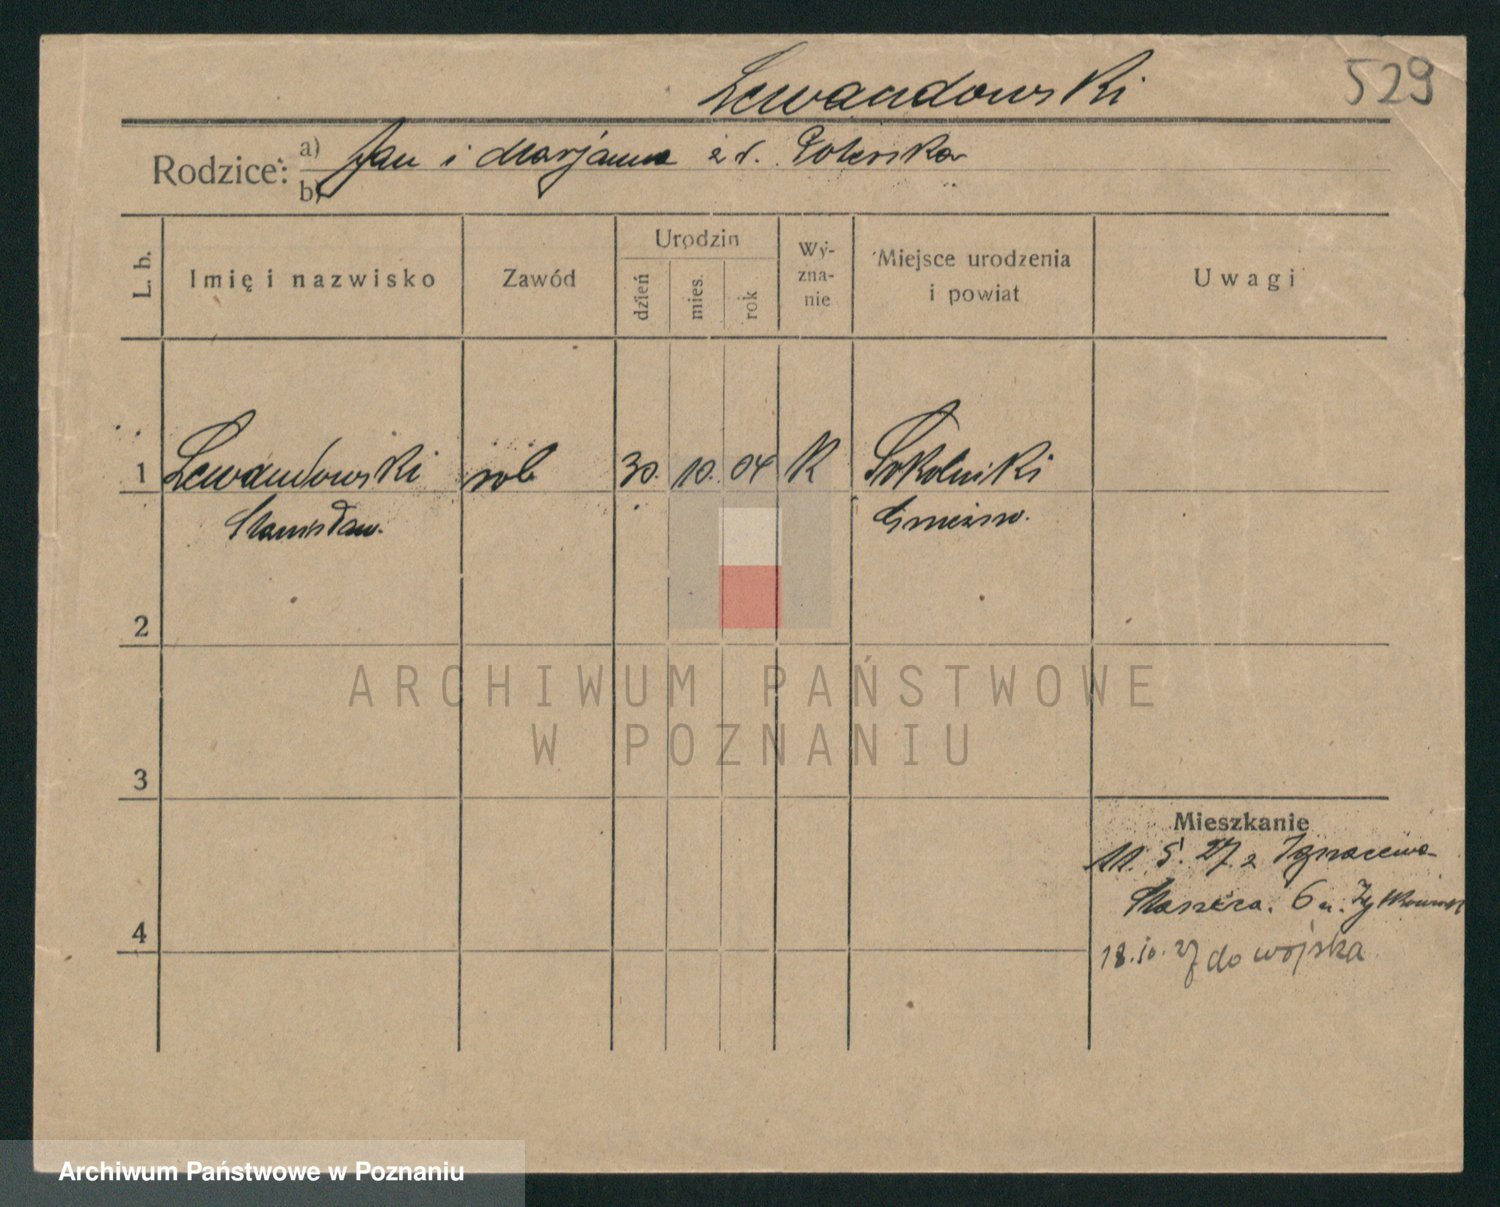 529
Lewandowski
Rodzice: a) Jan i Marjanna z d.
b)
L. b.
Imię i nazwisko
Zawód
Urodzin
dzień
mies.
rok
Wy-
zna-
nie
Miejsce urodzenia
i powiat
Uwagi
1 Lewandowski rob 30. 10. 04 K Sokolniki
Stanisław. Gniezno.
2
ARCHIWUM PAŃSTWOWE
W POZNANIU
3
Mieszkanie
11. 5. 27 z Ignacewa
Staszica. 6 u.
4
18. 10. 27 do wojska
Archiwum Państwowe w Poznaniu